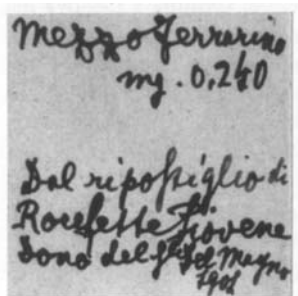 Mezzo Ferrarino
mg. 0,240
Dal ripostiglio di
Rocchette Piovene
Dono del Del Magno
1901